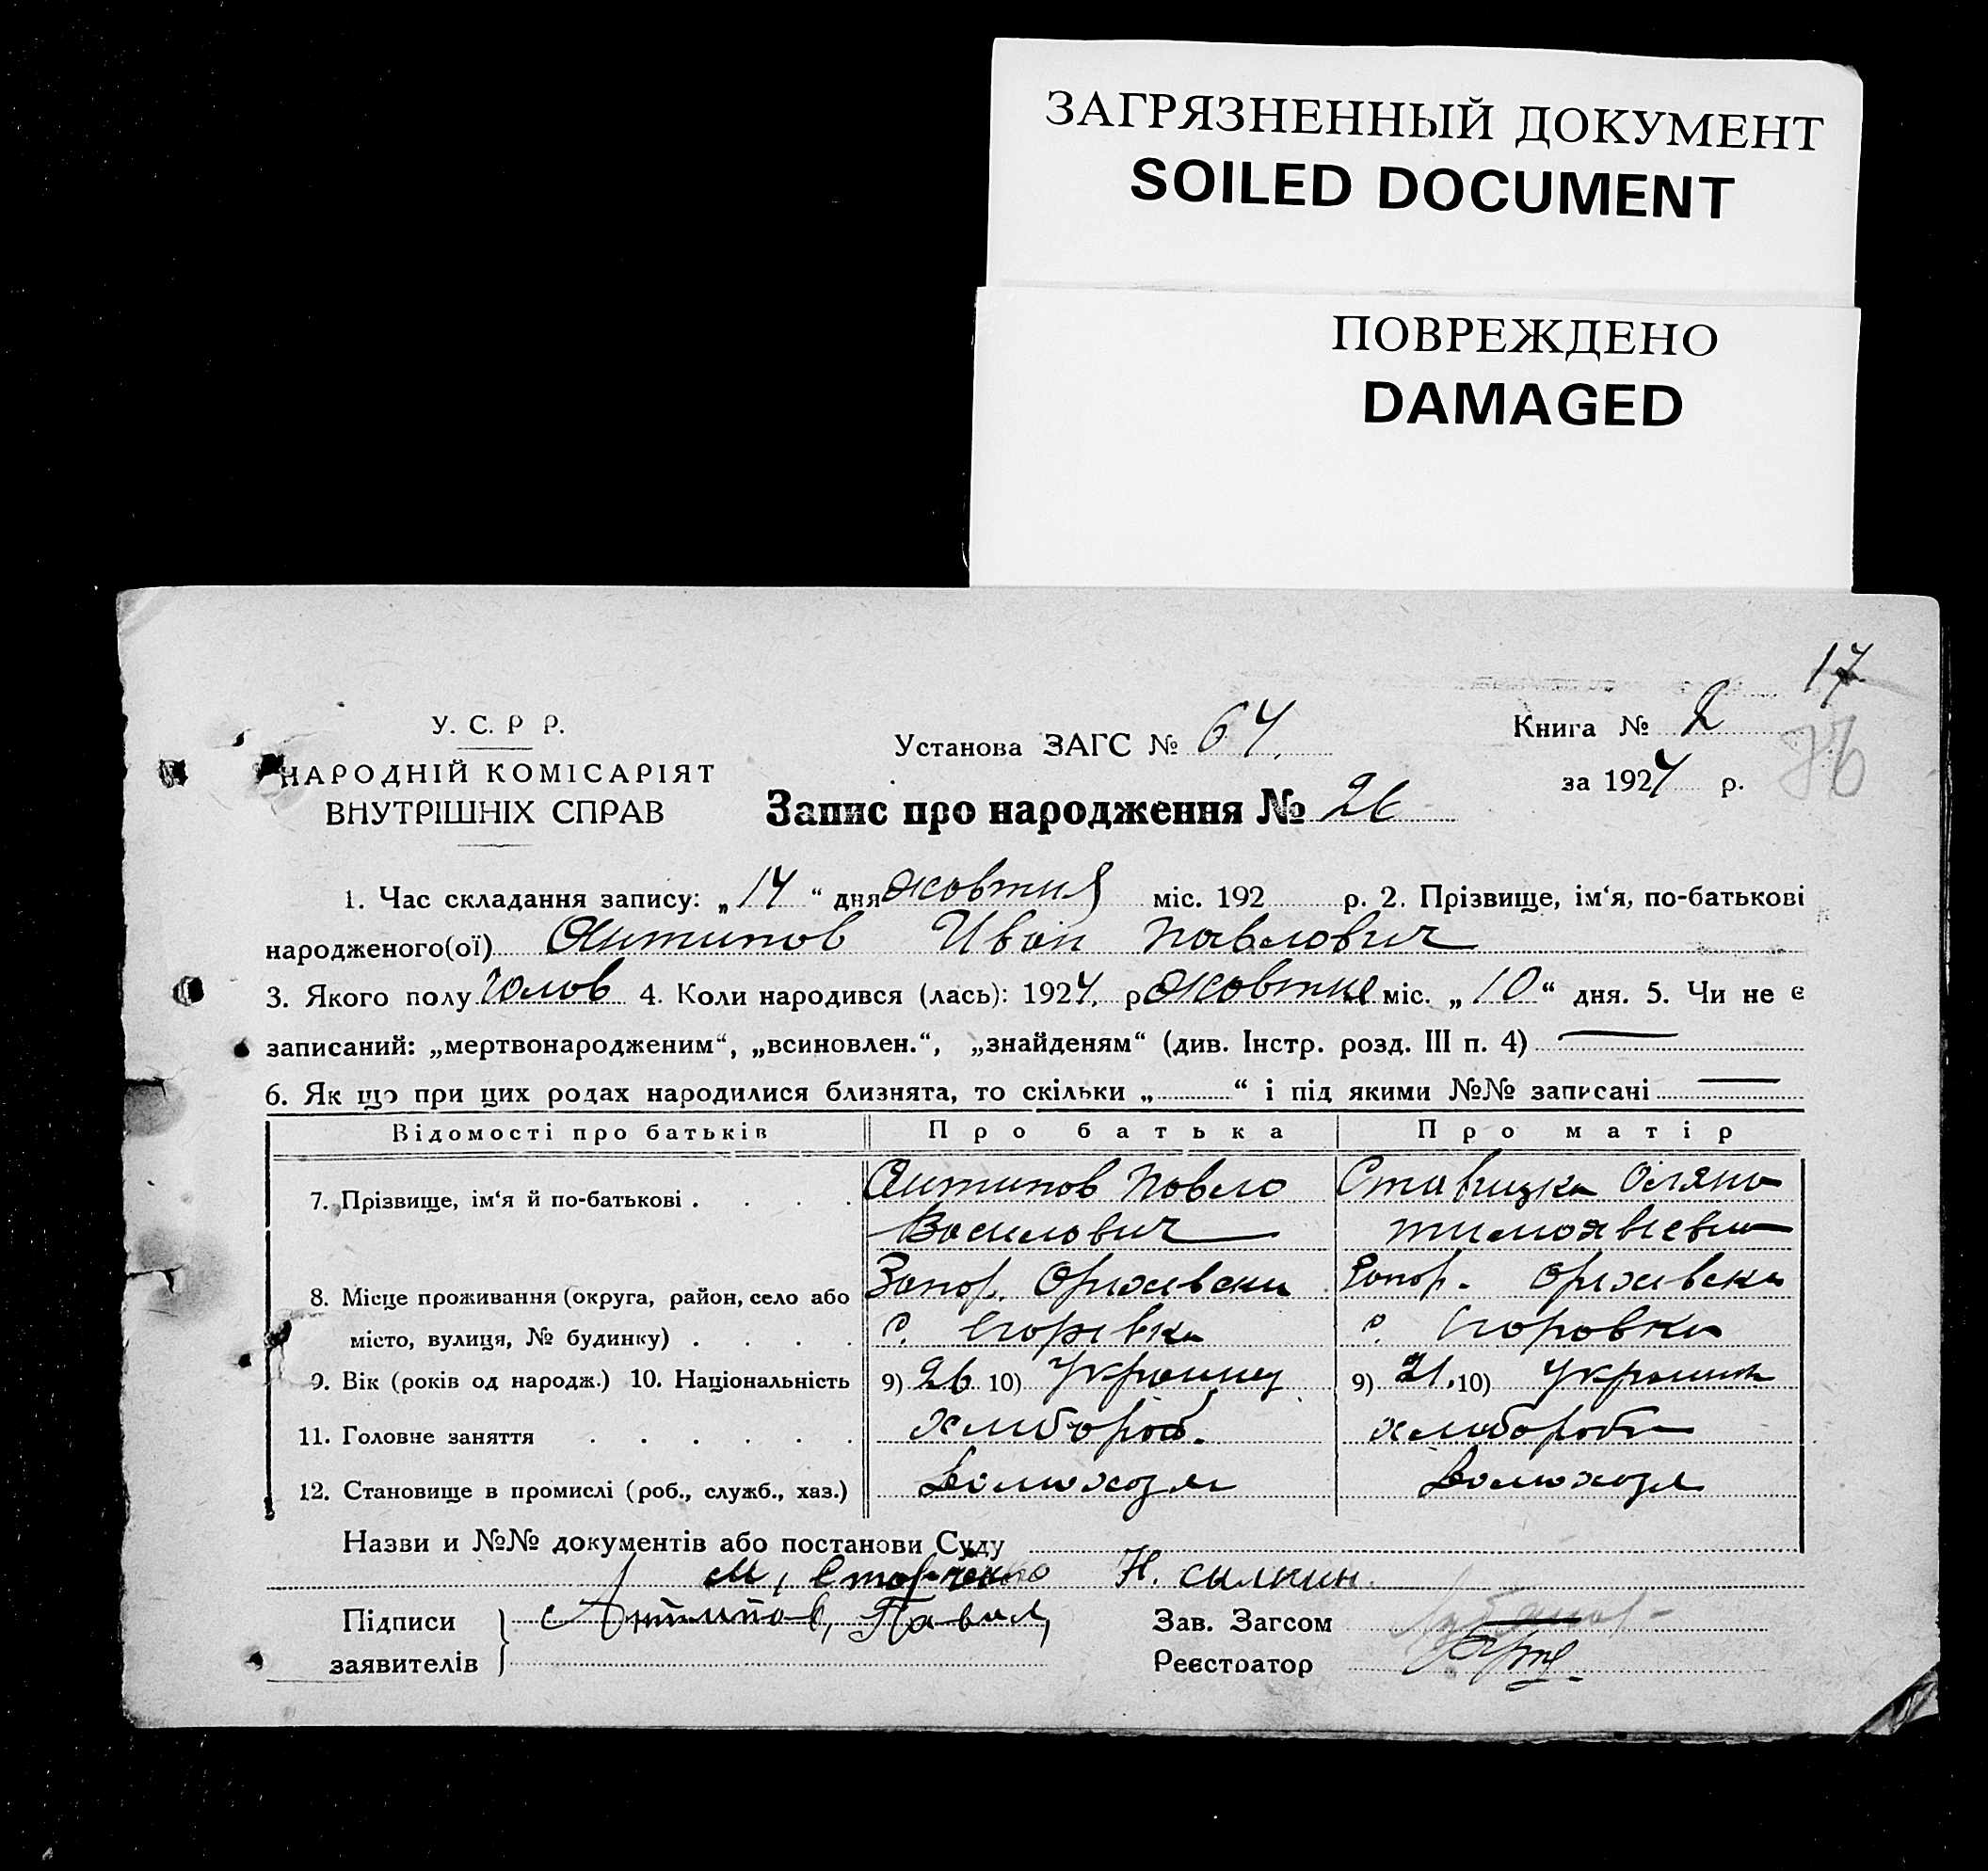 ЗАГРЯЗНЕННЫЙ ДОКУМЕНТ
SOILED DOCUMENT
ПОВРЕЖДЕНО
DAMAGED
17
У. С. Р Р.
Установа ЗАГС № 64
Книга № 2
НАРОДНІЙ КОМІСАРІЯТ
за 1924 р.
ВНУТРІШНІХ СПРАВ
Запис про народження № 26
1. Час складання запису: „14“ дня жовтня міс. 192 р. 2. Прізвище, ім‘я, по-батькові
народженого(ої) Антипов Иван Павлович
3. Якого полу Чолов 4. Коли народився (лась): 1924. р. жовтня міс. „10“ дня. 5. Чи не є
записаний: „мертвонародженим“, „всиновлен.“, „знайденям“ (див. Інстр. розд. III п. 4)
6. Як що при цих родах народилися близнята, то скільки „ “ і під якими №№ записані
Відомості про батьків Про батька Про матір
7. Прізвище, ім‘я й по-батькові . . . . Антипов Павло Ставицка
Василович
8. Місце проживання (округа, район, село або Запор. Запор.
місто, вулиця, № будинку) . . . . с. с.
9. Вік (років од народж.) 10. Національність 9) 26 10) Украинец 9) 21. 10)
11. Головне заняття . . . . . . хлибороб. хлибороб
12. Становище в промислі (роб., служб., хаз.)
Назви и №№ документів або постанови Суду
М, Н. силкин.
Підписи Антипов, Павил, Зав. Загсом
заявителів Реєстратор